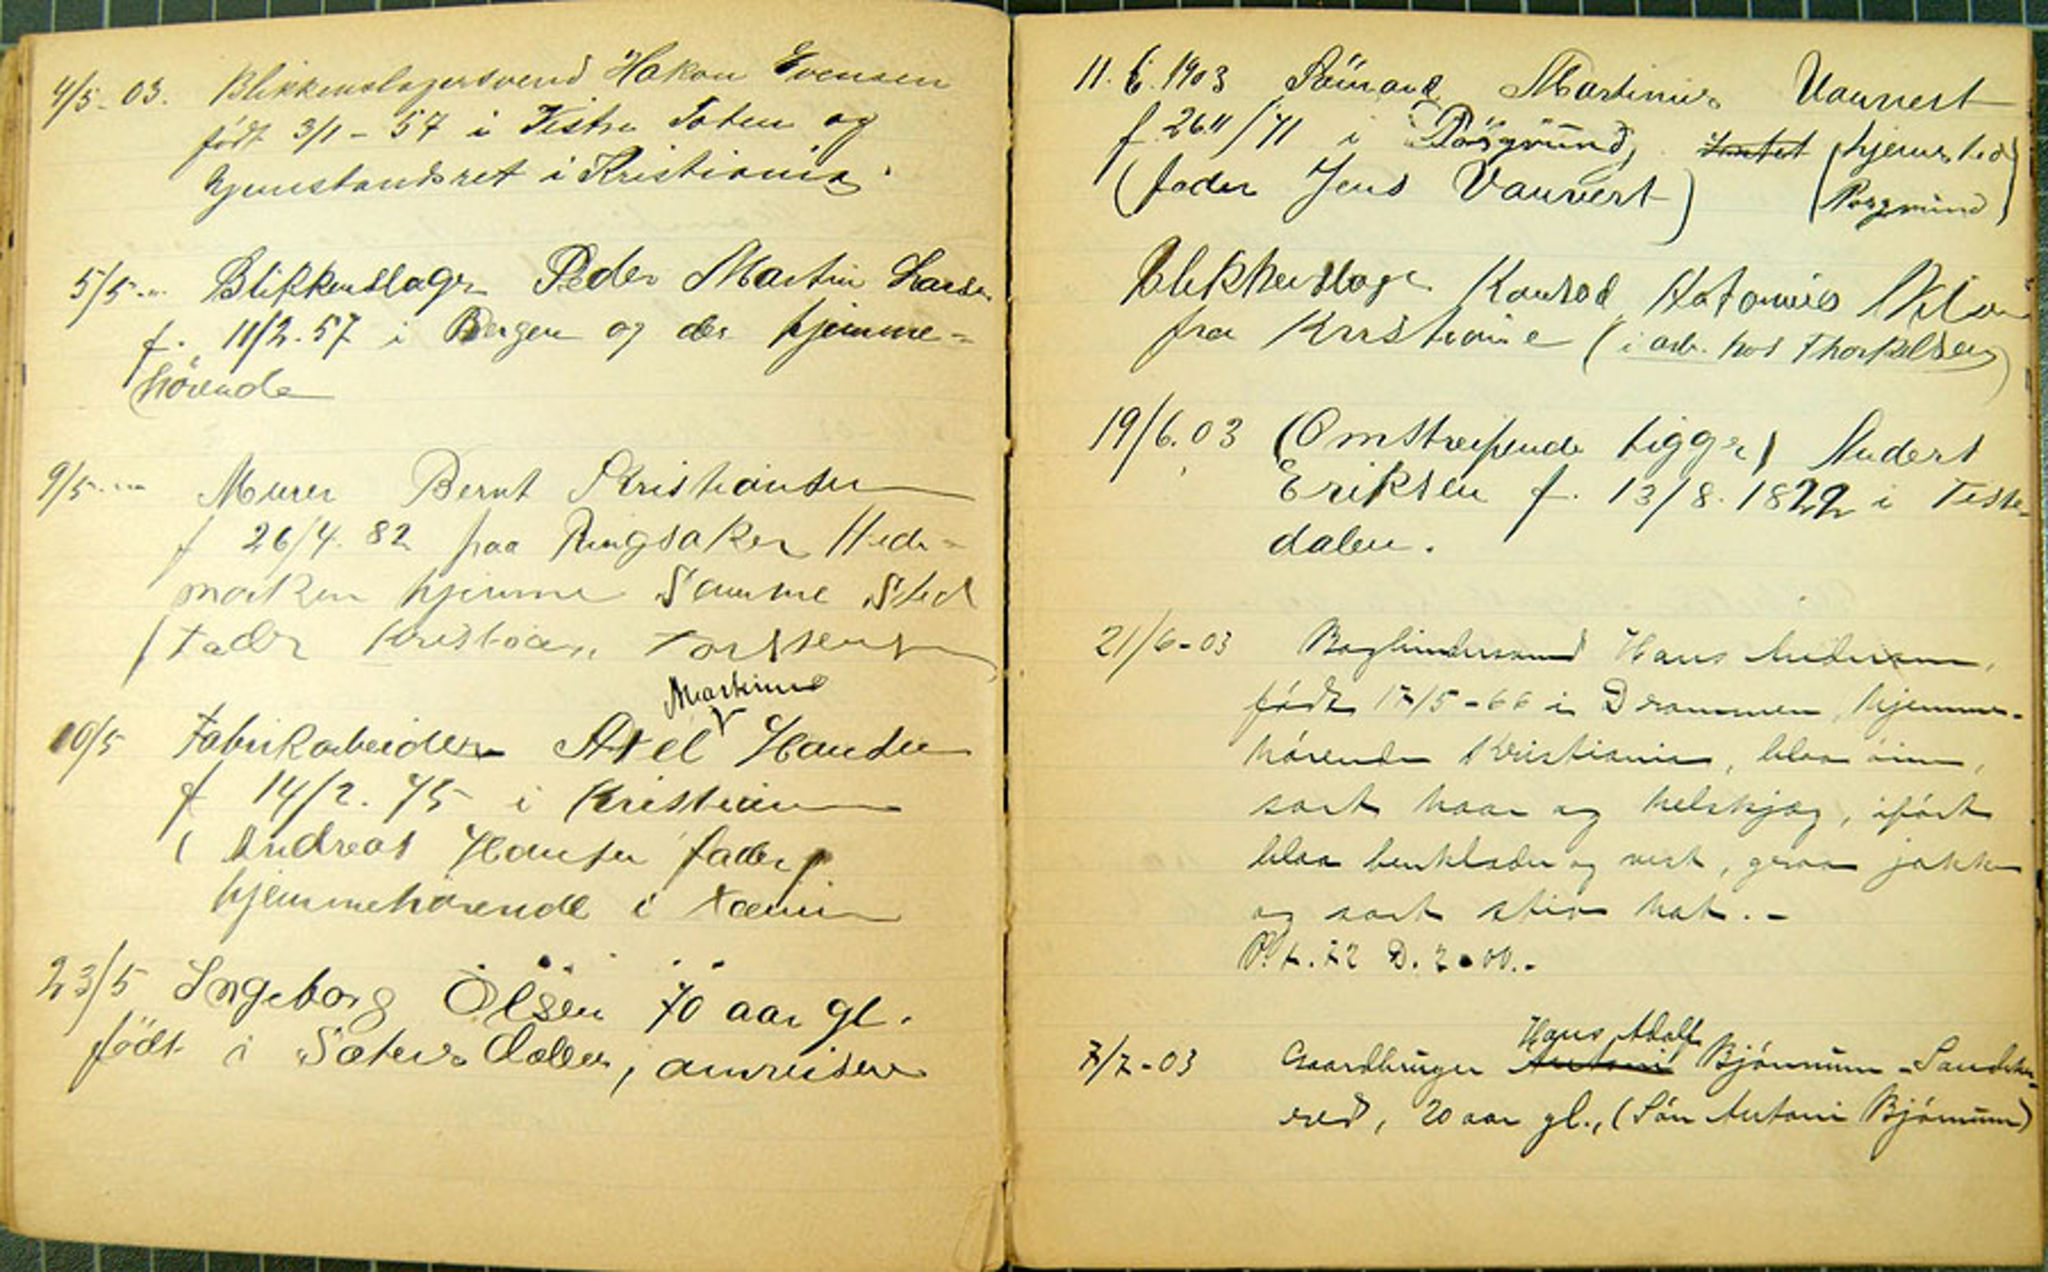 4/5-03. Blikkenslagersvend Hakon Evensen
født 3/1-57 i Vestre Toten og
hjemstandsret i Kristiania.
5/5 Blikkenslager Peder Martin Larsen
f. 11/2.57 i Bergen og der hjemme-
hörende
9/5 Murer Bernt Kristiansen
f 26/4.82 fra Ringsaker Hede-
marken hjemme Samme Sted
(Fader Kristian
Martinus
10/5 Fabrikarbeider Axel Hansen
f 14/2.75 i Kristiania
(Andreas Hansen fader)
hjemmehörende i
23/5 Ingeborg Olsen 70 aar gl.
födt i Sætersdalen, omreisene
11.6.1903 Sömand Martinius Vauvert
f 26 11/71 i Pörsgrund, (hjemsted
(fader Jens Vauvert) Porsgrund)
Blikkenslager Konrad Antonius Nilsen
fra Kristiania (i arb. hos Thorkelsen)
19/6.03 (Omstreifende tigger) Anders
Eriksen f. 13/8.1822 i Tiste-
dalen.
21/6-03 Bogbindersvend Hans Andersen,
född 17/5-66 i Drammen, hjemme-
hörende Kristiania, blaa öine,
sort haar og helskjæg, iført
blaa benklæder og vest, graa jakke
og sort stiv hat.-
Hans Adolf
7/7-03 Gaardbruger Antoni Bjönnum - Sandehe-
red, 20 aar gl., (Sön Antoni Bjönnum)